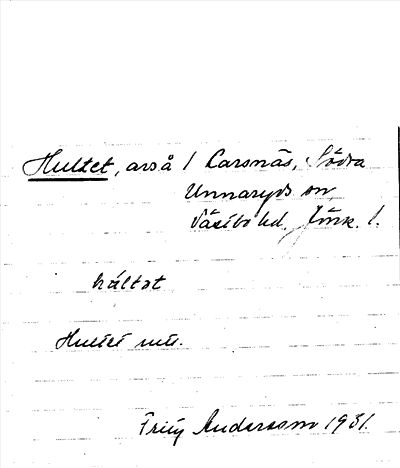 Hultet, avs å / Larsnäs, Södra
Unnaryds sn
Västbo hd. Jönk. l.
háltət
Hultet
Andersson 1931.